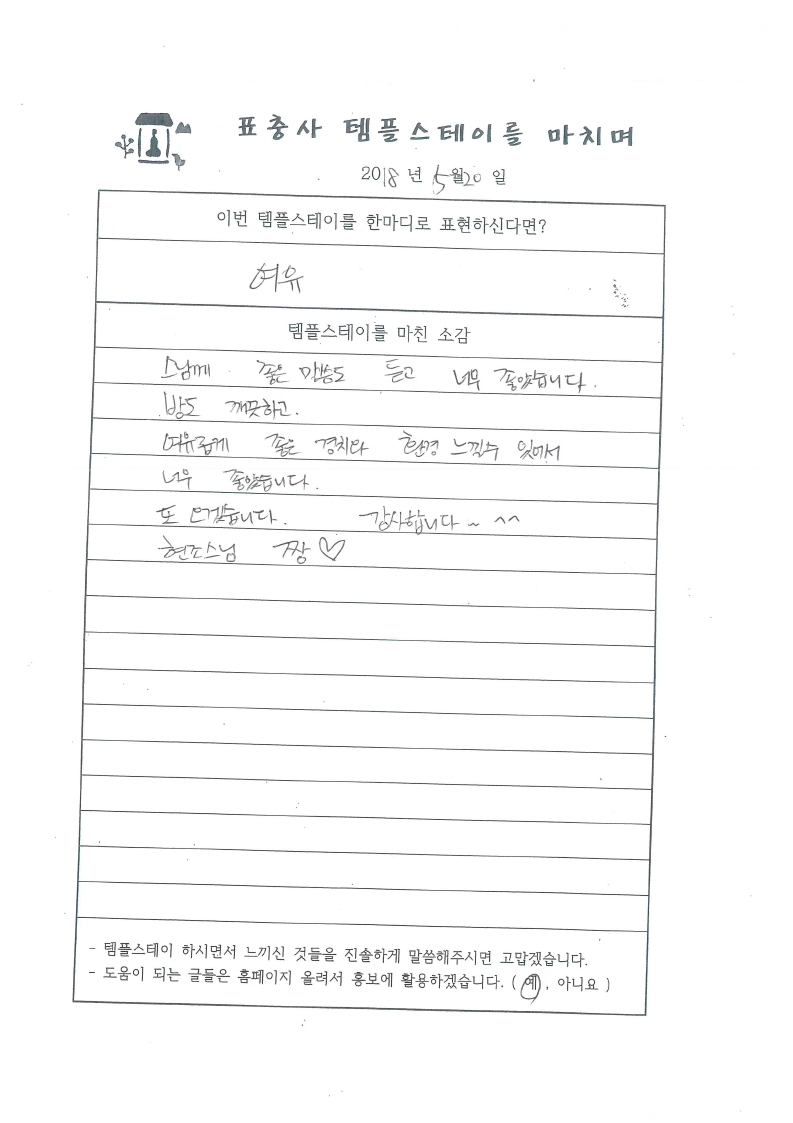 표충사 템플스테이를 마치며
2018 년 5월20 일
이번 템플스테이를 한마디로 표현하신다면?
여유
템플스테이를 마친 소감
스님께 좋은 말씀도 듣고 너무 좋았습니다.
방도 깨끗하고.
여유롭게 좋은 경치와 환경 느낄수 있어서
너무 좋았습니다.
또 오겠습니다. 감사합니다~ ^^
현조스님 짱♡
- 템플스테이 하시면서 느끼신 것들을 진솔하게 말씀해주시면 고맙겠습니다.
- 도움이 되는 글들은 홈페이지 올려서 홍보에 활용하겠습니다. ( 예 , 아니요 )